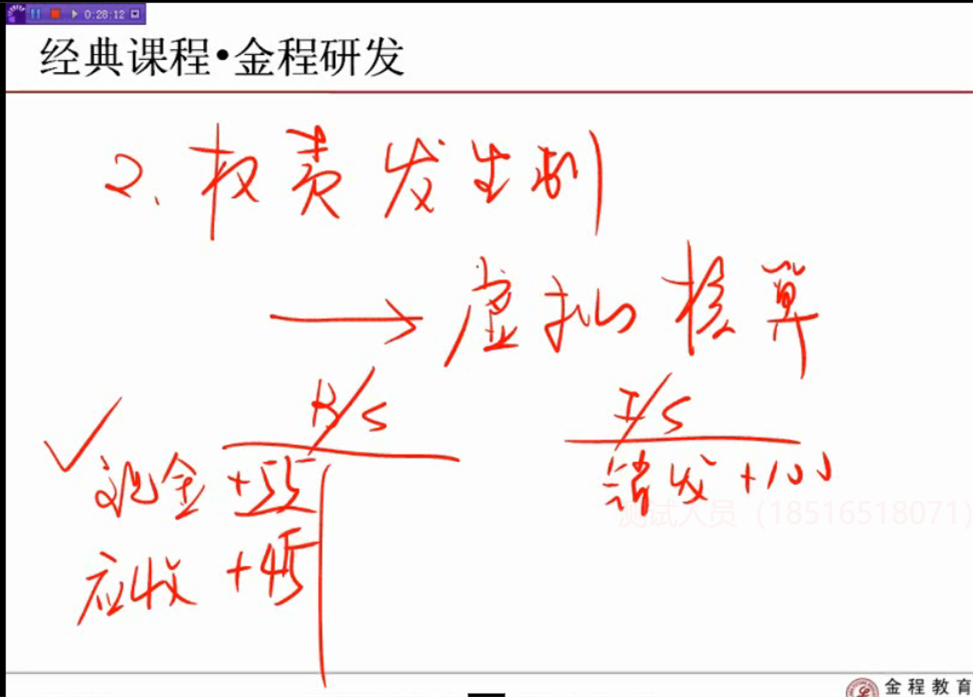 0:28:12
经典课程•金程研发
2、权责发生制
→虚拟核算
B/S
I/S
现金 +55
销货 +100
应收 +45
测试人员（18516518071）
金程教育